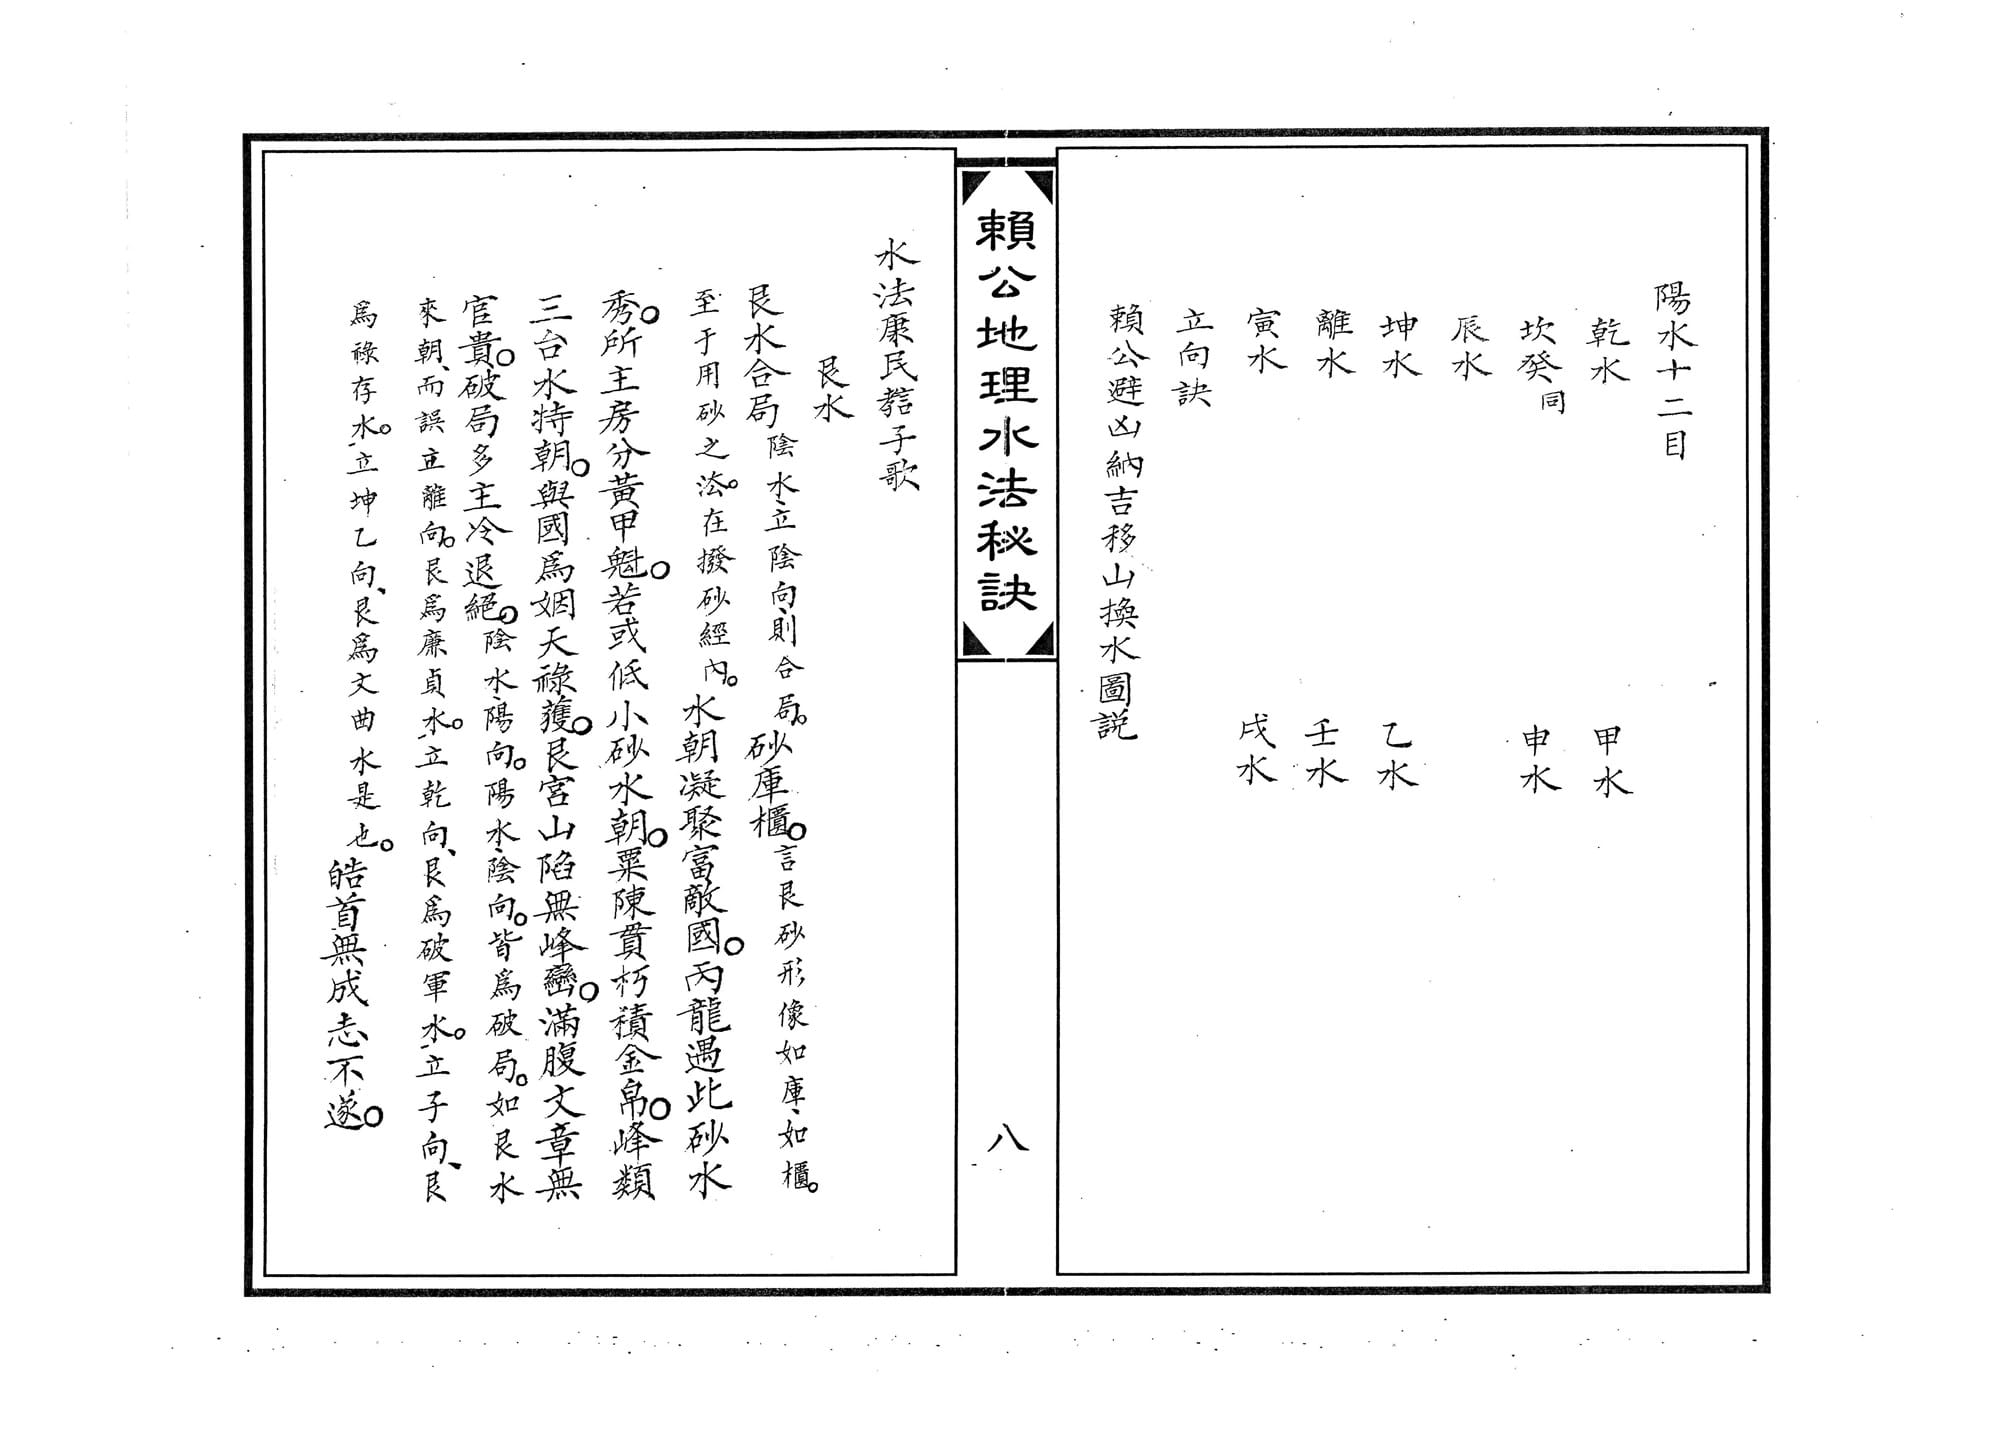 陽水十二目
乾水 甲水
坎癸同 申水
辰水
坤水 乙水
離水 壬水
寅水 戌水
立向訣
賴公避凶納吉移山換水圖説
賴公地理水法秘訣
八
水法康民嚞子歌
艮水
艮水合局陰水、立陰向、則合局。砂庫櫃。言艮砂形像如庫、如櫃。
至于用砂之法。在撥砂經內。水朝凝聚富敵國。丙龍遇此砂水
秀。所主房分黃甲魁。若或低小砂水朝。粟陳貫朽積金帛。峰類
三台水特朝。與國爲姻天祿獲。艮宮山陷無峰巒。滿腹文章無
官貴。破局多主冷退絕。陰水陽向。陽水、陰向。皆爲破局。如艮水
來朝、而誤立離向。艮爲廉貞水。立乾向、艮爲破軍水。立子向、艮
爲祿存水。立坤乙向、艮爲文曲水是也。皓首無成志不遂。